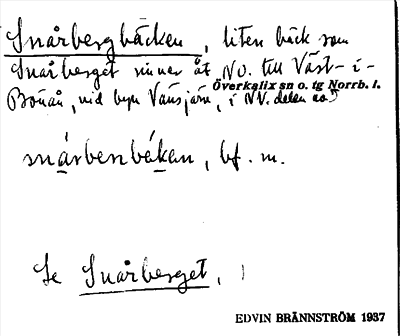 Snårbergbäcken, liten bäck som
Snårberget rinner åt NO. till Väst-i-
Överkalix sn o. tg Norrb. l.
Bönån, vid byn Vänsjärn, i NV. delen av
snårbenbékan, bf. m.
Se Snårberget,
EDVIN BRÄNNSTRÖM 1937